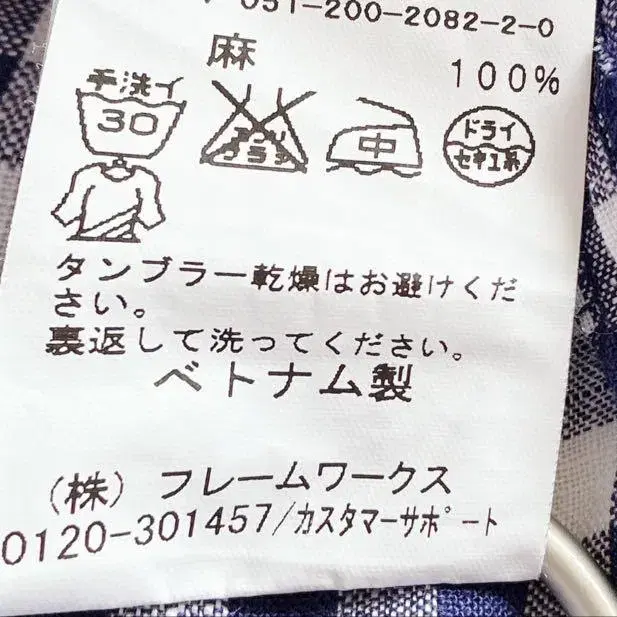 051-200-2082-2-0
麻 100%
手洗イ
30
エンソ
サラシ
中
ドライ
セキユ系
タンブラー乾燥はお避けくだ
さい。
裏返して洗ってください。
ベトナム製
(株) フレームワークス
0120-301457/カスタマーサポート